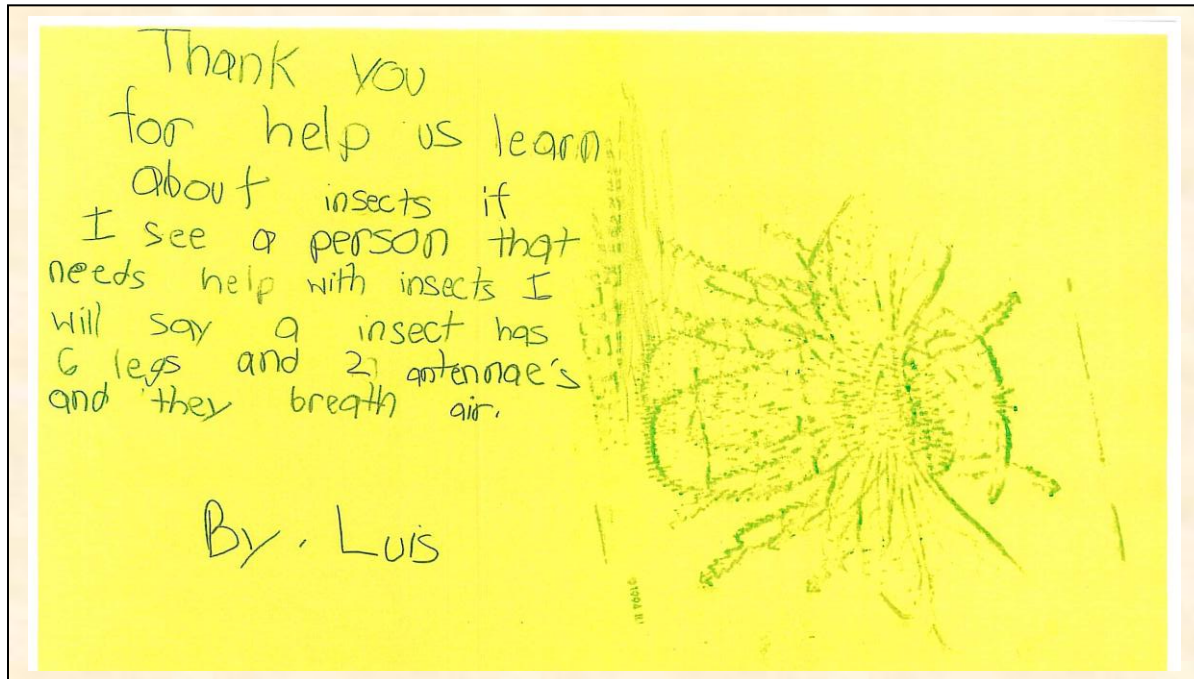 Thank you
for help us learn
about insects if
I see a person that
needs help with insects I
will say a insect has
6 legs and 2 antennae's
and they breath air.
By. Luis